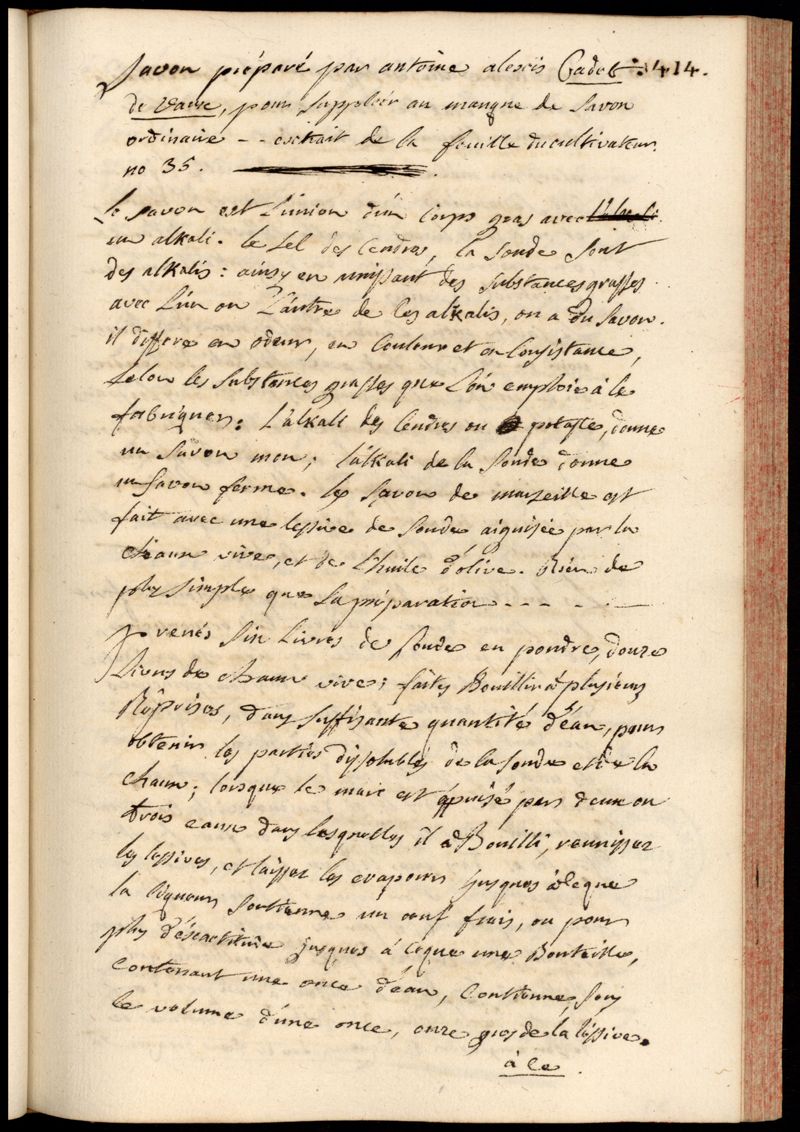 Savon préparé par antoine alexis Cadet 414.
de Vaux, pour Suppléer au manque de Savon
ordinaire -- extrait de la feuille du cultivateur.
no 35.
le savon est L'union d'un Corps gras avec l'alkali
un alkali. le sel des Cendres, la soude sont
des alkalis: ainsy en unissant des substances grasses
avec L'un ou L'autre de ces alkalis, on a du Savon.
il differe en odeur, en Couleur et en Consistance,
selon les substances grasses que L'on emploie à le
fabriquer: L'alkali des Cendres ou potasse, donne
un Savon mou; l'alkali de la soude donne
un Savon ferme. le Savon de marseille est
fait avec une lessive de soude aiguisée par la
chaux vive, et de L'huile d'olive. Rien de
plus simple que sa préparation - - - . -
prenés six Livres de soude en poudre, douze
Livres de chaux vive; faites Bouillir à plusieurs
Réprises, dans suffisante quantité d'eau, pour
obtenir les parties dissolubles de la soude et de la
chaux; lorsque le marc est épuisé par deux ou
trois eaux dans lesquelles il a Bouilli, reunissez
les lessives, et laissez les evaporer jusques à ce que
la liqueur soutienne un oeuf frais, ou pour
plus d'éxactitude jusques à ceque une Bouteille,
contenant une once d'eau, Contienne, sous
le volume d'une once, onze gros de la lessive.
à ce.